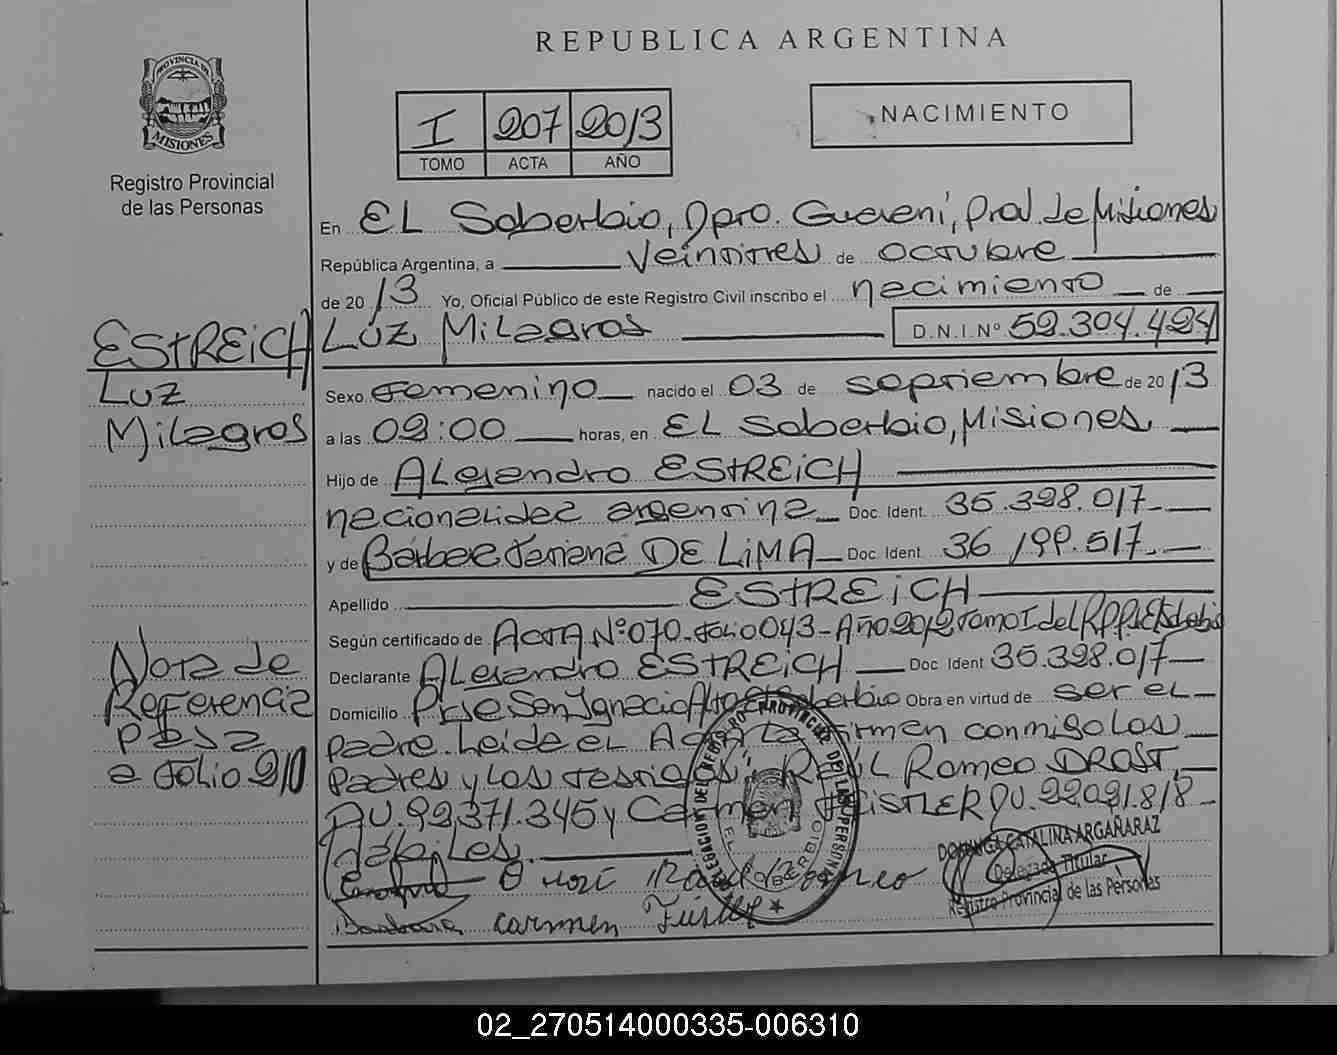 REPUBLICA ARGENTINA
PROVINCIA DE
MISIONES
Registro Provincial
de las Personas
I 207 2013
TOMO ACTA AÑO
NACIMIENTO
En EL Soberbio, Dpto. Guaraní, Prov. de Misiones
República Argentina, a Veintitres de octubre
de 2013 Yo, Oficial Público de este Registro Civil inscribo el nacimiento de
LUZ Milagros D.N.I.Nº 52.304.424
Sexo Femenino nacido el 03 de septiembre de 2013
a las 09:00 horas, en EL Soberbio, Misiones
Hijo de Alejandro ESTREiCH
nacionalidad argentina Doc. Ident. 35.328.017
y de DE LiMA Doc. Ident. 36 199.517
Apellido ESTREiCH
Según certificado de ACTA Nº 070. Folio 043 - Año 2012 Tomo I del
Declarante Alejandro ESTREiCH Doc. Ident 35.328.017
Domicilio San Ignacio Alto El Soberbio Obra en virtud de ser el
padre. Leida el Acta La firman conmigo Los
padres y Los testigos, Raúl Romeo DROST,
DU. 92.371.345 y Carmen DU. 22.021.818
hábiles.
Carmen
DOMINGA CATALINA ARGAÑARAZ
Delegada Titular
Registro Provincial de las Personas
DELEGACION DEL REGISTRO PROVINCIAL DE LAS PERSONAS
EL SOBERBIO
ESTREiCH
LUZ
Milagros
Nota de
Referencia
pasa
a Folio 210
02_270514000335-006310